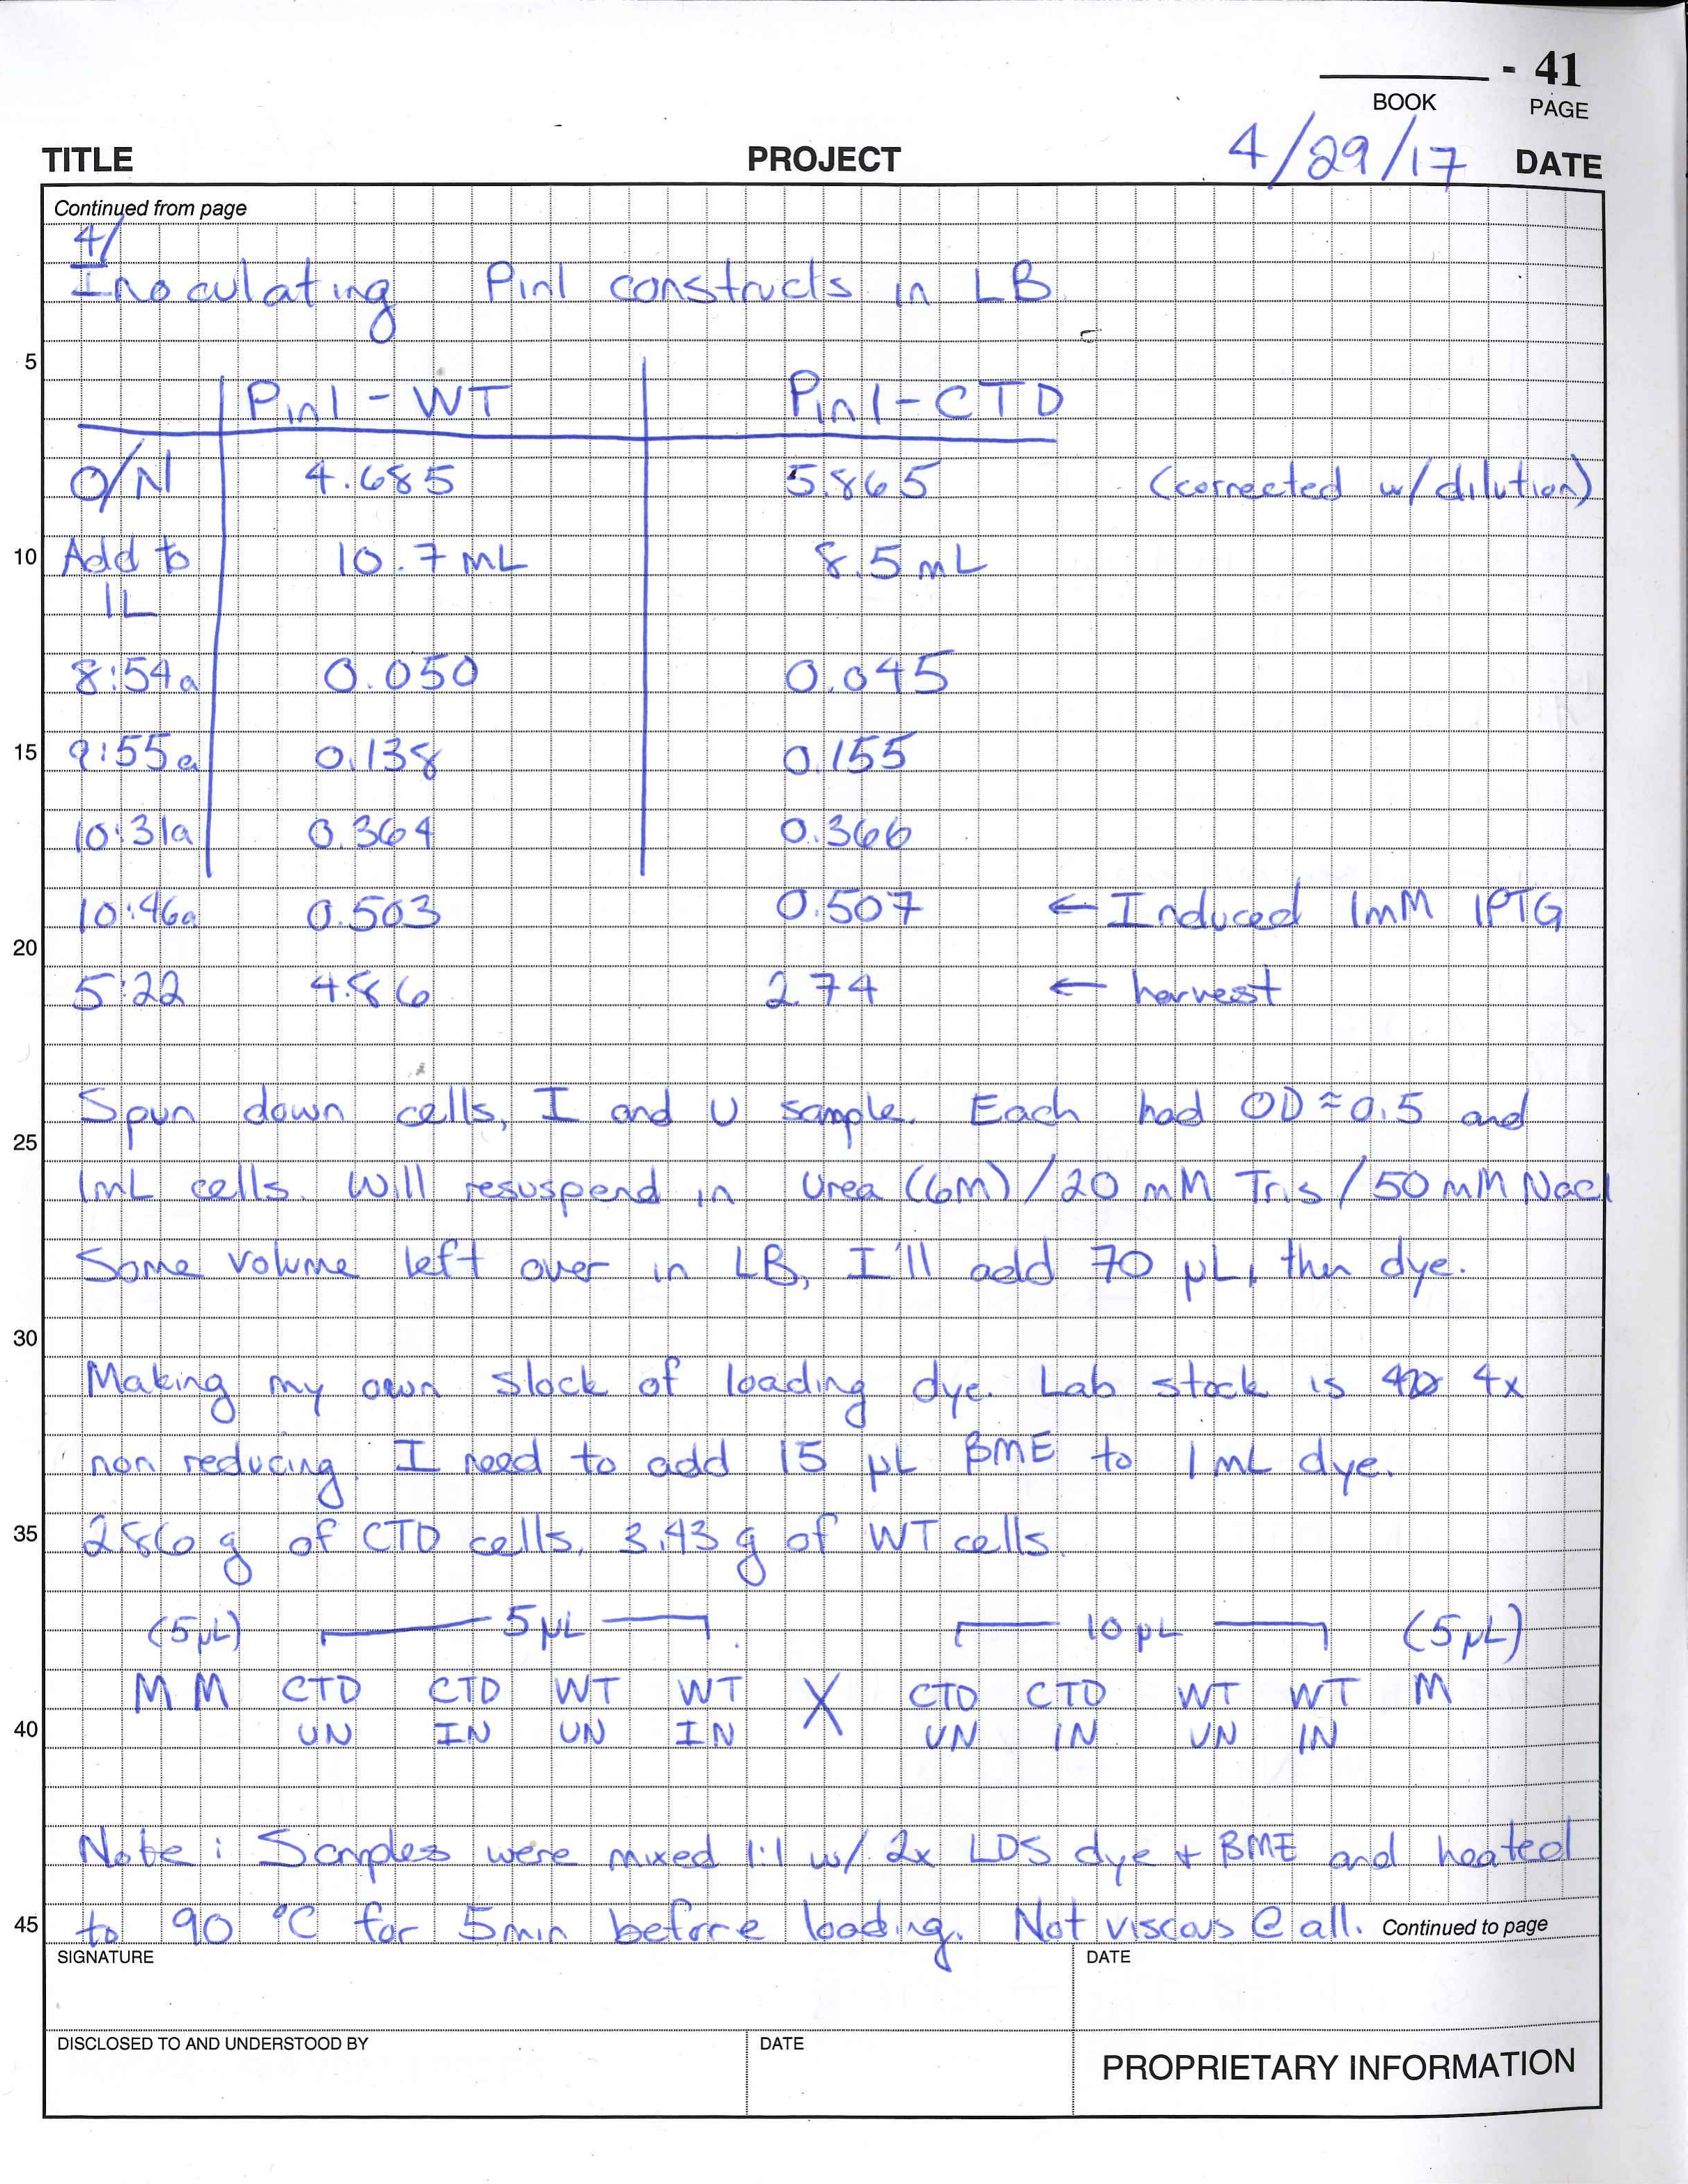 - 41
BOOK PAGE
TITLE PROJECT 4/29/17 DATE
Continued from page
4/
Inoculating Pin1 constructs in LB
5
Pin1-WT Pin1-CTD
O/N 4.685 5.865 (corrected w/dilution)
10 Add to 10.7 mL 8.5 mL
1L
8:54a 0.050 0.045
15 9:55a 0.138 0.155
10:31a 0.364 0.366
10:46a 0.503 0.507 ← Induced 1mM IPTG
20
5:22 4.86 2.74 ← harvest
Spun down cells, I and U sample. Each had OD≈0.5 and
25
1mL cells. Will resuspend in Urea (6M)/20 mM Tris/50 mM NaCl
Some volume left over in LB, I'll add 70 µL, then dye.
30
Making my own stock of loading dye. Lab stock is 4x
non reducing. I need to add 15 µL BME to 1mL dye.
35 2.86 g of CTD cells, 3.43 g of WT cells.
(5µL) 5µL 10 µL (5µL)
M M CTD CTD WT WT X CTD CTD WT WT M
40 UN IN UN IN UN IN UN IN
Note: Samples were mixed 1:1 w/ 2x LDS dye + BME and heated
45 to 90 °C for 5min before loading. Not viscous @ all. Continued to page
SIGNATURE DATE
DISCLOSED TO AND UNDERSTOOD BY DATE PROPRIETARY INFORMATION